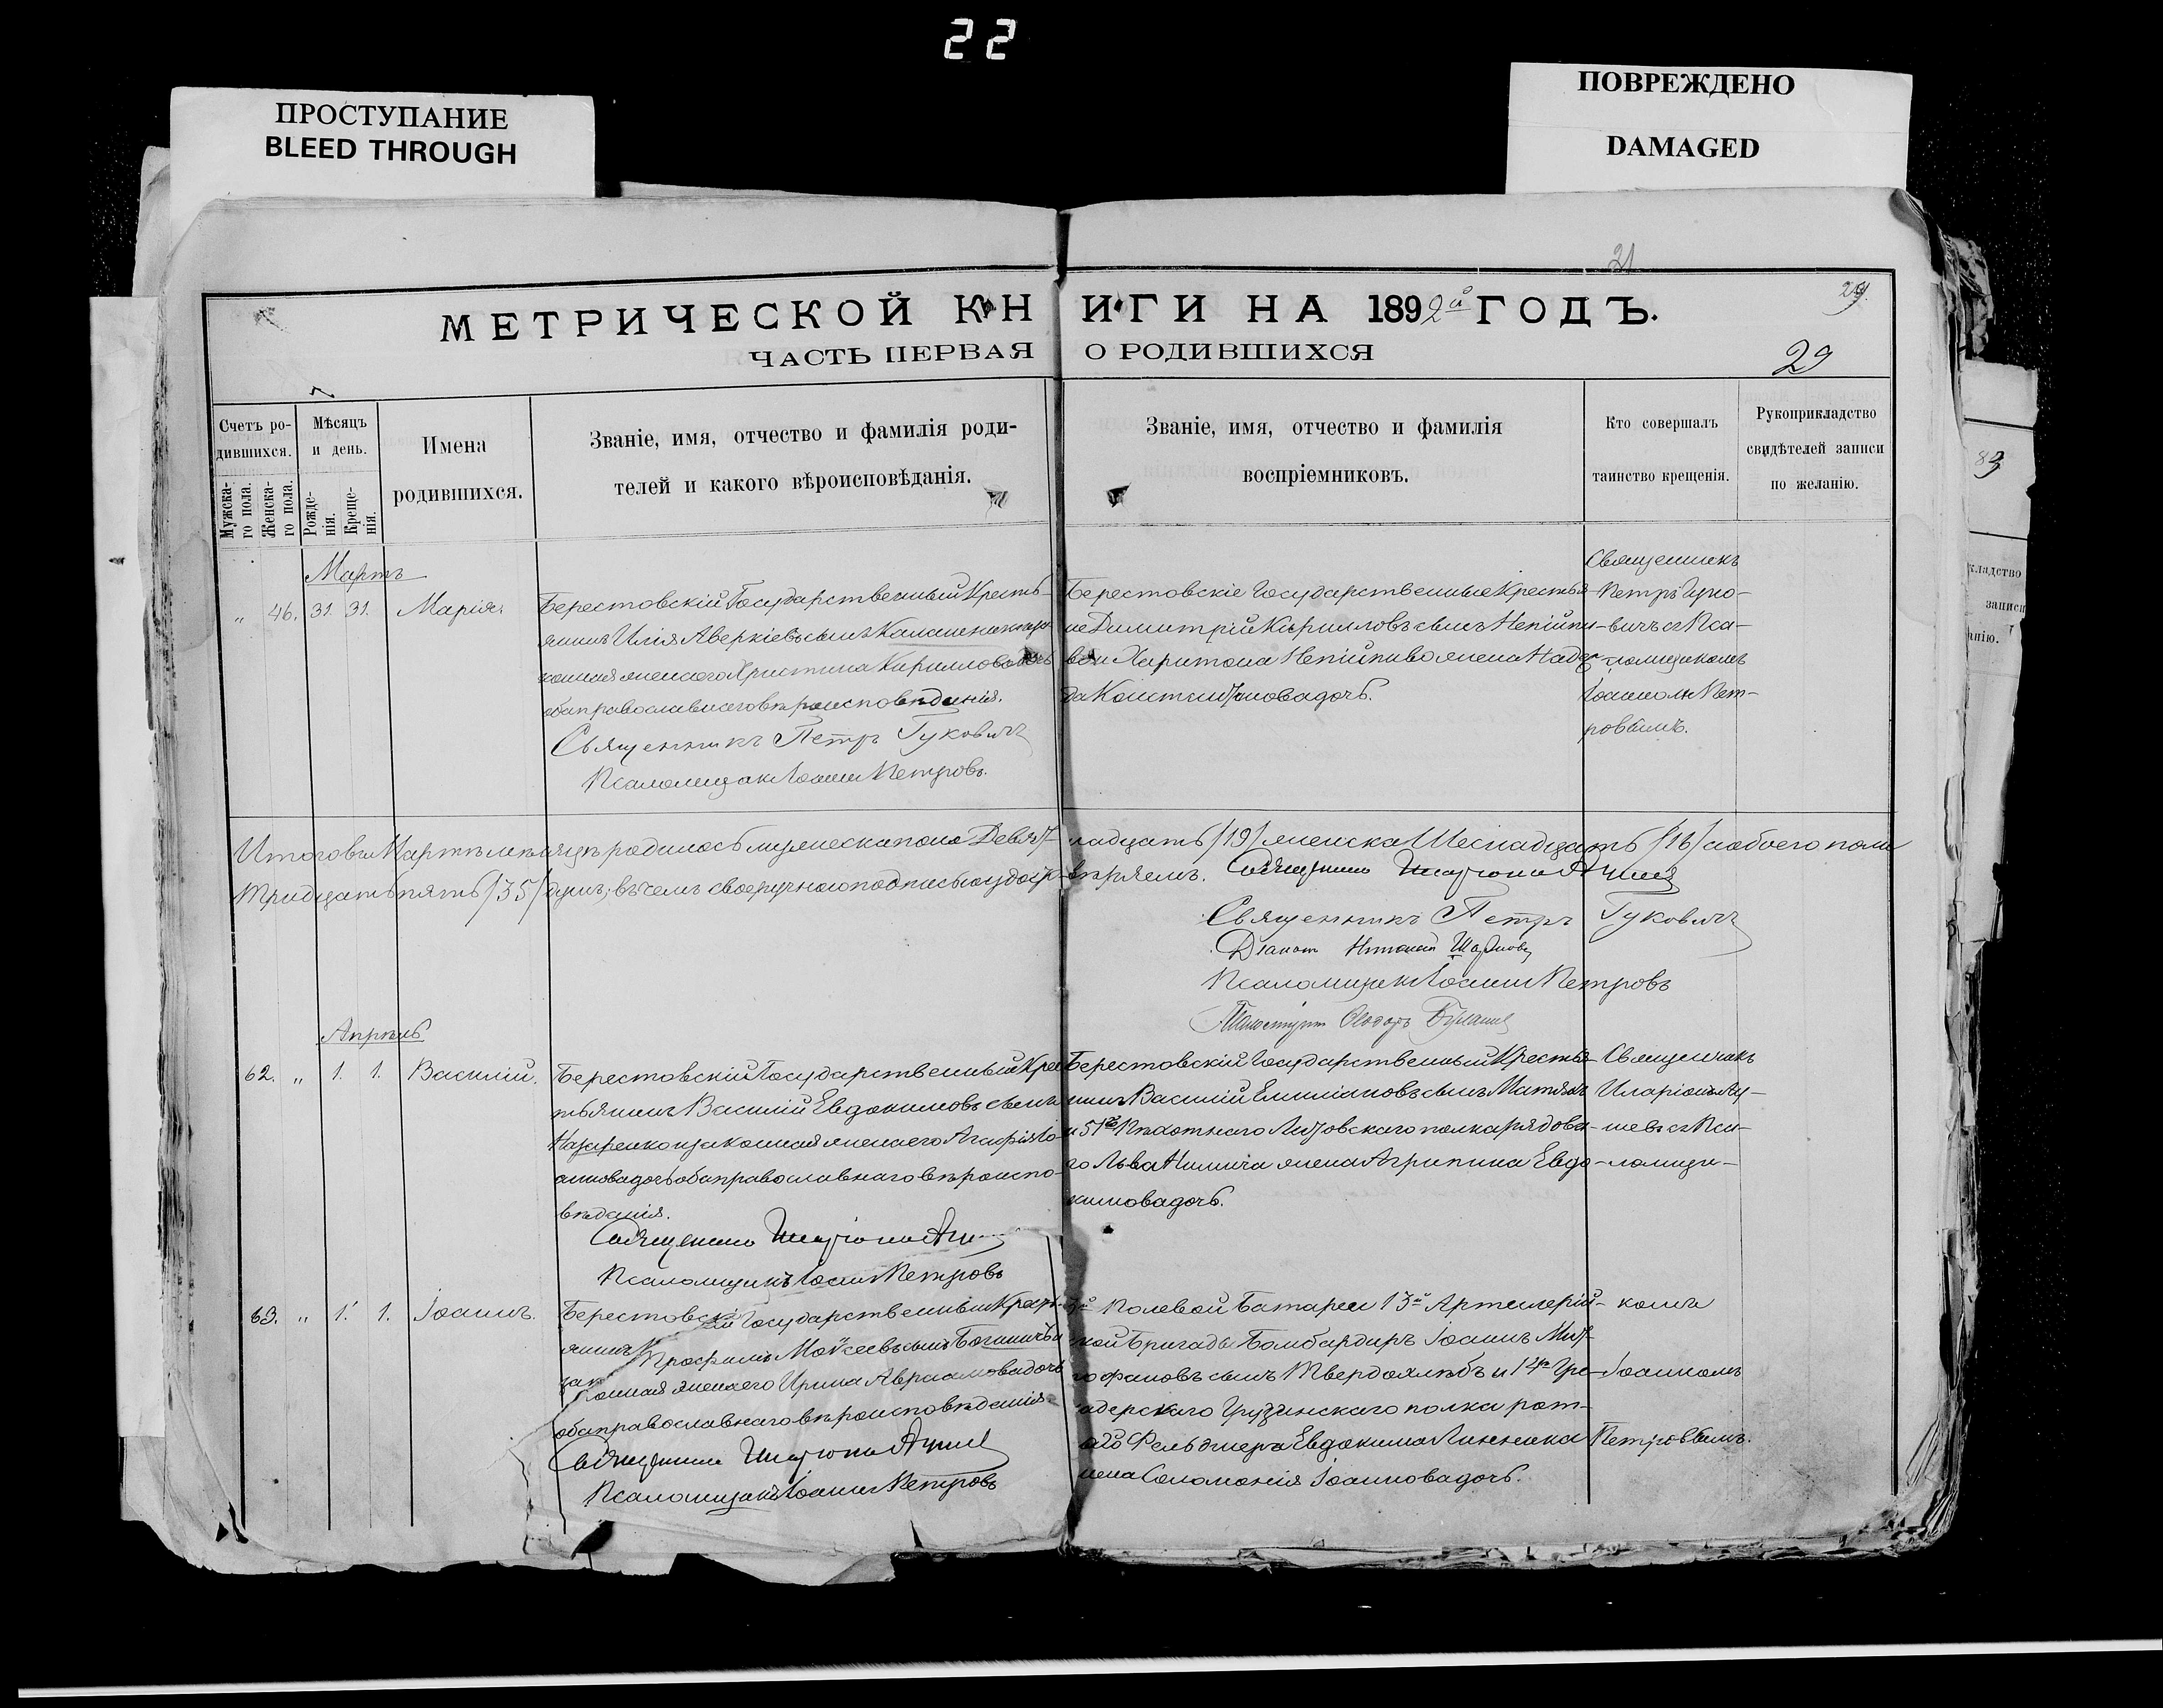 22
ПРОСТУПАНИЕ
BLEED THROUGH
ПОВРЕЖДЕНО
DAMAGED
21
29
МЕТРИЧЕСКОЙ КНИГИ НА 1892й ГОДЪ.
ЧАСТЬ ПЕРВАЯ О РОДИВШИХСЯ
29
Счетъ ро-
дившихся.
Мужска-
го пола.
Женска-
го пола.
Мѣсяцъ
и день.
Рожде-
нія.
Креще-
нія.
Имена
родившихся.
Званіе, имя, отчество и фамилія роди-
телей и какого вѣроисповѣданія.
Званіе, имя, отчество и фамилія
воспріемниковъ.
Кто совершалъ
таинство крещенія.
Рукоприкладство
свидѣтелей записи
по желанію.
Мартъ
" 46. 31. 31. Марія.
Берестовскій Государственный Кресть-
янинъ Илія Аверкіевъ сынъ
конная жена его Христина Кириллова дочь
оба православнаго вѣроисповѣданія.
Священникъ Петръ Гуковичъ
Псаломщикъ Іоаннъ Петровъ.
Берестовскіе Государственные Крестья-
не Димитрій Кирилловъ сынъ Непійпи-
во и Харитона Непійпиво жена Надеж-
да Константинова дочь.
Священникъ
Петръ Гуко-
вичъ съ Пса-
ломщикомъ
Іоанномъ Пет-
ровымъ.
Итого въ Мартѣ мѣсяцѣ родилось мужеска пола Девятнадцать /19/ женска Шестнадцать /16/ а обоего пола
Тридцать пять /35/ душъ; въ чемъ своеручною подписью удостовѣряемъ. Священникъ Иларіонъ
Священникъ Петръ Гуковичъ
Діаконъ
Псаломщикъ Іоаннъ Петровъ
Ѳеодоръ
Апрѣль
62. " 1. 1. Василій.
Берестовскій Государственный Крес-
тьянинъ Василій Евдокимовъ сынъ
Назаренко и законная жена его Агафія Іо-
аннова дочь оба православнаго вѣроиспо-
вѣданія.
Священникъ Иларіонъ
Псаломщикъ Іоаннъ Петровъ
Берестовскій Государственный Крестья-
нинъ Василій Емиліановъ сынъ
и 51го Пѣхотнаго Литовскаго полка рядова-
го Льва жена Агрипина Евдо-
кимова дочь.
Священникъ
Иларіонъ
съ Пса-
ломщи-
63. " 1. 1. Іоаннъ.
Берестовскій Государственный Кресть-
янинъ Трофимъ Моѵсеевъ сынъ
законная жена его Ирина Авраамова дочь
оба православнаго вѣроисповѣданія.
Священникъ Иларіонъ
Псаломщикъ Іоаннъ Петровъ
й Полевой Батареи 13й Артилерій-
ской Бригады Бомбардиръ Іоаннъ Мит-
рофановъ сынъ Твердохлѣбъ и 14го Гре-
надерскаго Грузинскаго полка рот-
наго Фельдшера Евдокима
жена Соломонія Іоаннова дочь.
комъ
Іоанномъ
Петровымъ.
83
кладство
записи
анію.